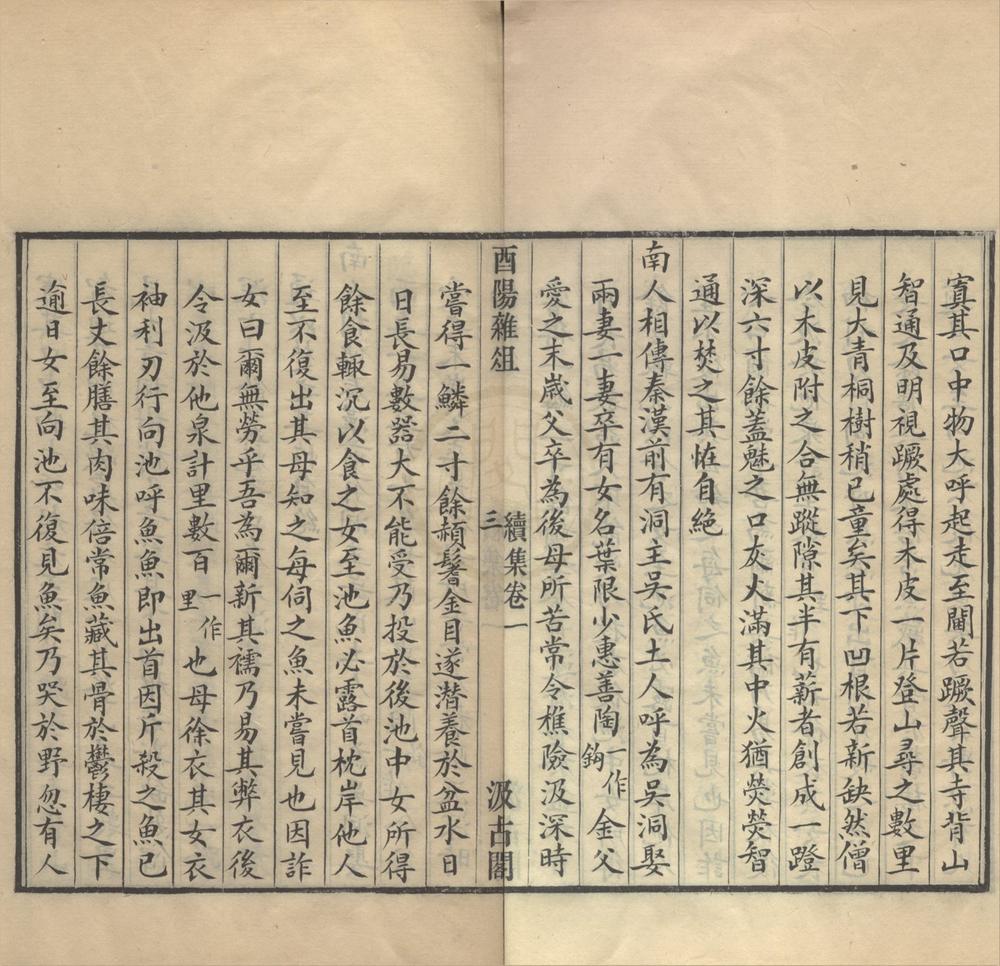 寘其口中物大呼起走至閽若蹶聲其寺背山
智通及明視蹶處得木皮一片登山尋之數里
見大青桐樹稍已童矣其下凹根若新缺然僧
以木皮附之合無蹤隙其半有薪者創成一蹬
深六寸餘蓋魅之口灰火滿其中火猶熒熒智
通以焚之其恠自絶
南人相傳秦漢前有洞主吳氏土人呼為吳洞娶
兩妻一妻卒有女名葉限少惠善陶一作鈎金父
愛之末歳父卒為後母所苦常令樵險汲深時
酉陽雜俎 續集卷一 三 汲古閣
嘗得一鱗二寸餘赬鬐金目遂潛養於盆水日
日長易數器大不能受乃投於後池中女所得
餘食輙沉以食之女至池魚必露首枕岸他人
至不復出其母知之每伺之魚未嘗見也因詐
女曰爾無勞乎吾為爾新其襦乃易其弊衣後
令汲於他泉計里數百一作里也母徐衣其女衣
袖利刃行向池呼魚魚即出首因斤殺之魚已
長丈餘膳其肉味倍常魚藏其骨於鬱棲之下
逾日女至向池不復見魚矣乃哭於野忽有人